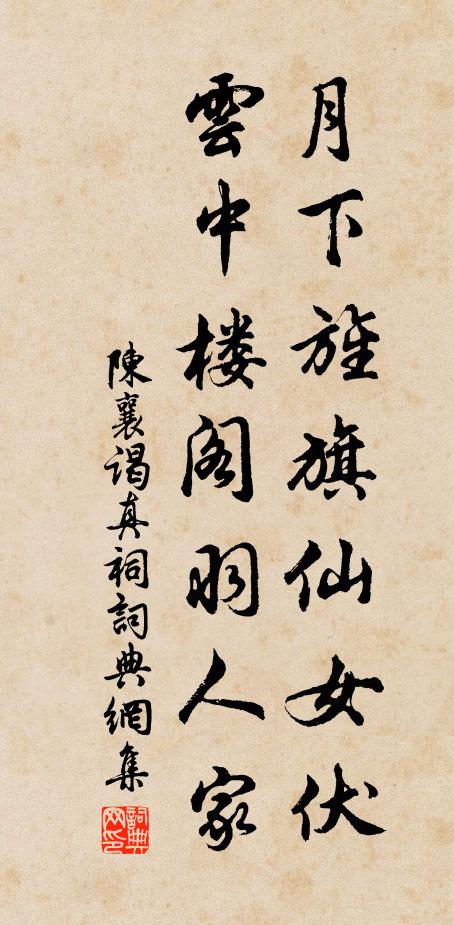 月下旌旗仙女伏
雲中楼阁羽人家
陳襄謁真祠詞典網集
詞典
网印